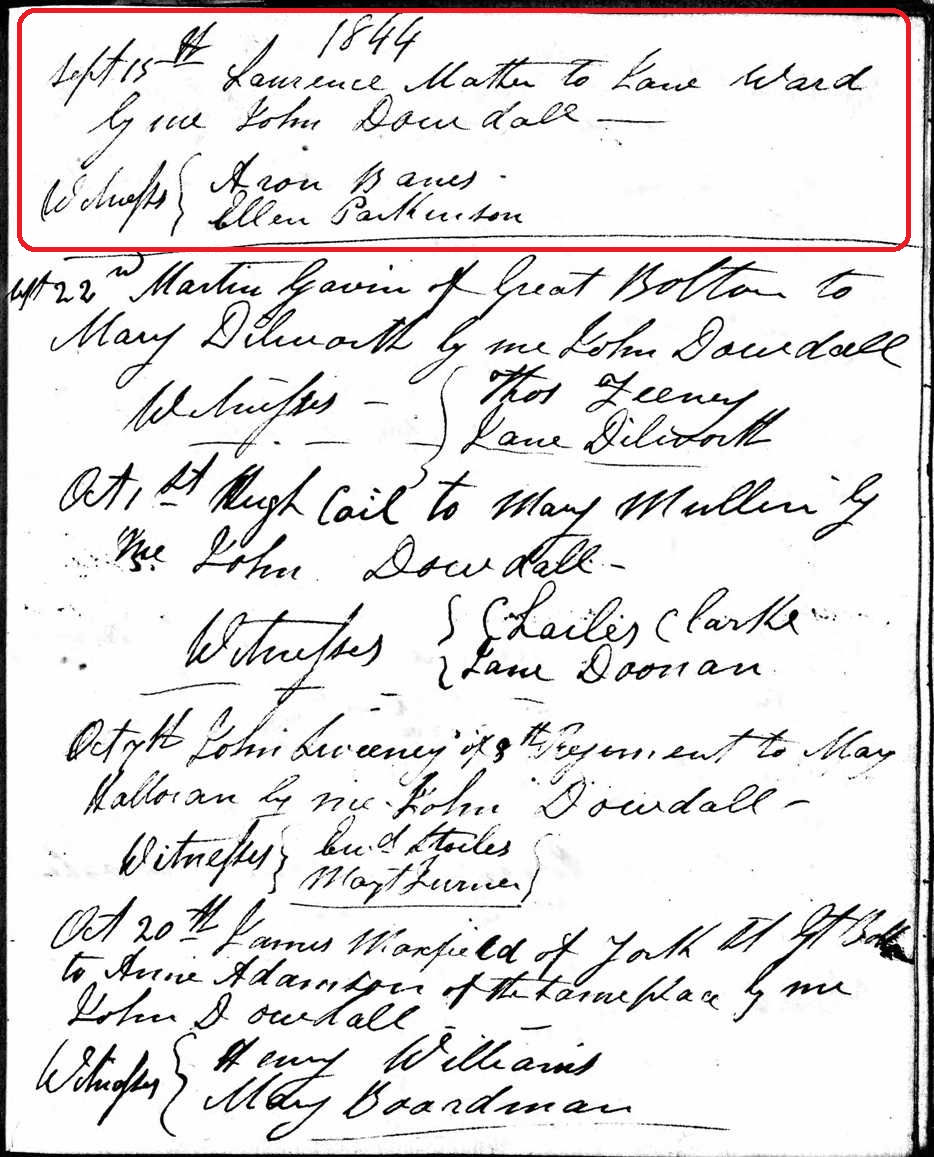 1844
Sept 15th Laurence Matter to Jane Ward
by me John Dowdall —
Witnesses { Aron Banes -
Ellen Parkinson
Sept 22nd Martin Gavin of Great Bolton to
Mary Dilworth by me John Dowdall
Witnesses - { Thos Feeney
Jane Dilworth
Oct 1st Hugh Cail to Mary Mullin by
me John Dowdall -
Witnesses { Charles Clarke
Jane Doonan
Oct 7th John Sweeney of 8th Regiment to Mary
Halloran by me John Dowdall -
Witnesses {
Turner }
Oct 20th James Maxfield of York St Gt Bolton
to Anne Adamson of the same place by me
John Dowdall
Witnesses { Henry Williams
Mary Boardman